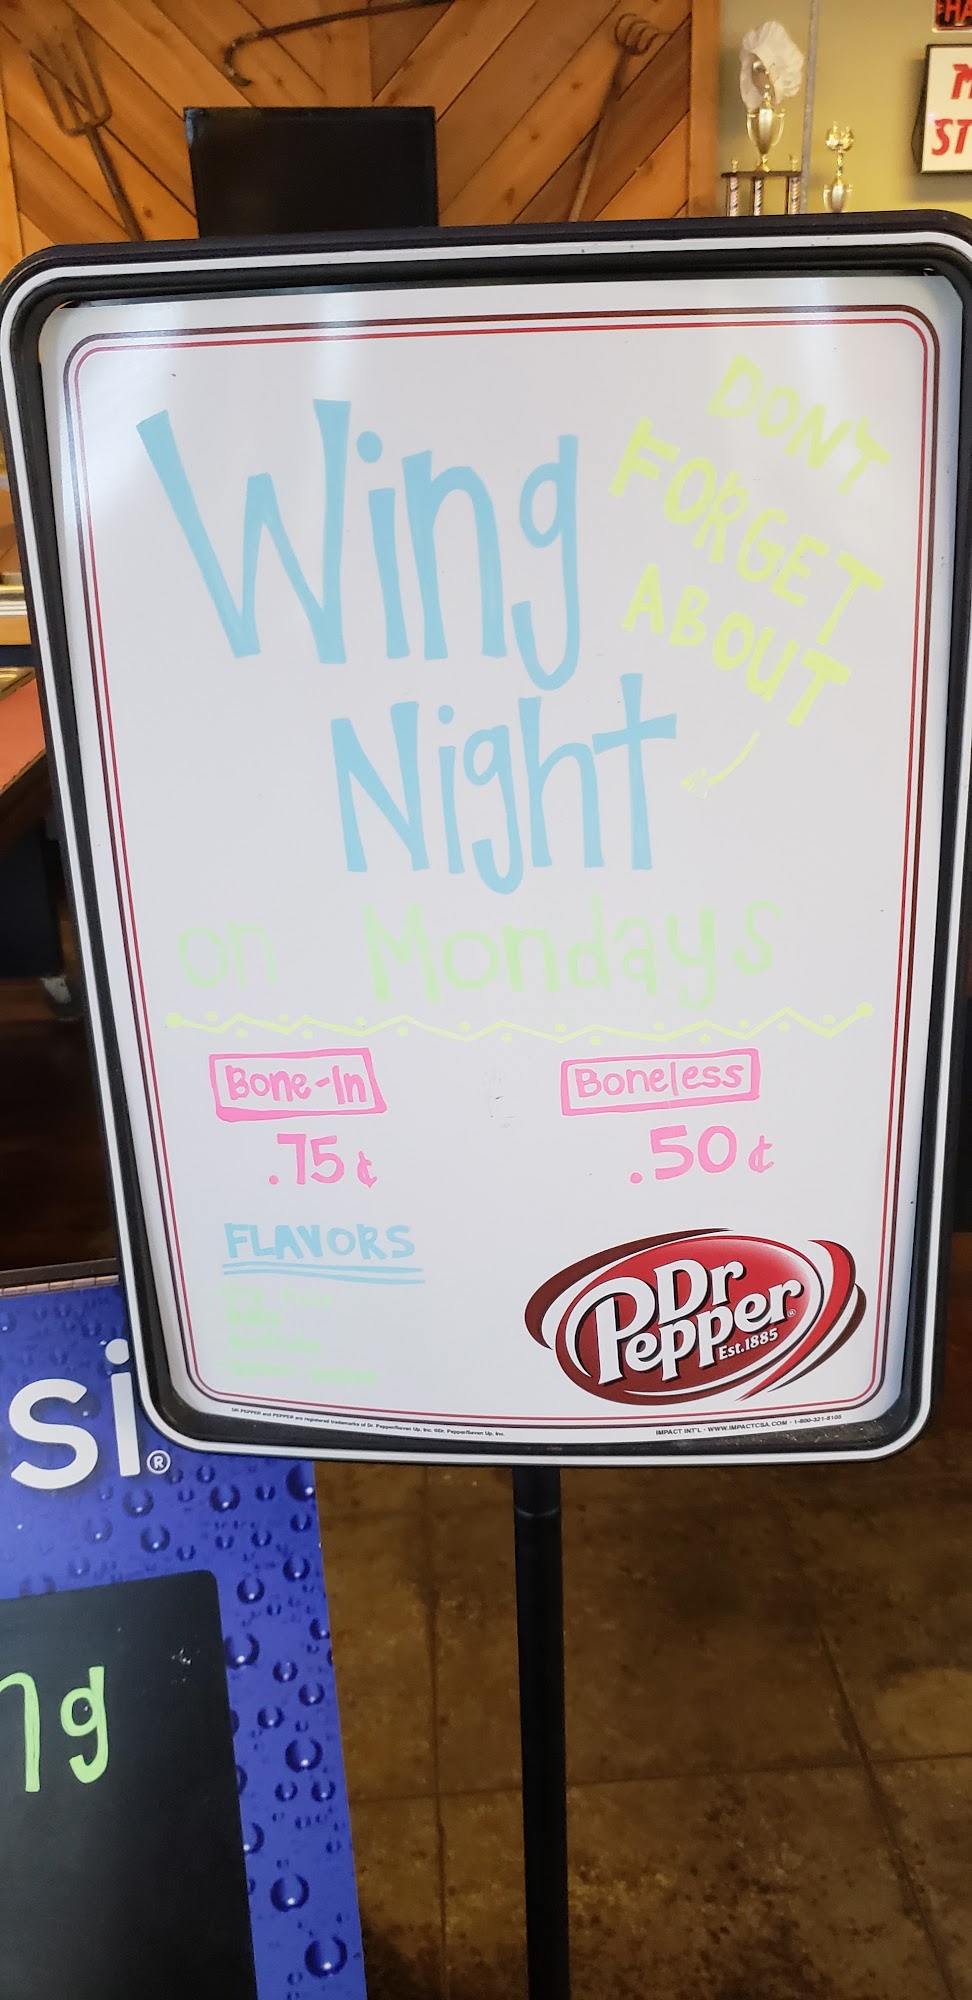 DON'T
FORGET
ABOUT
Wing
Night
on Mondays
Bone-In
Boneless
.75¢
.50¢
FLAVORS
Dr
Pepper®
Est.1885
DR PEPPER and PEPPER are registered trademarks of Dr. Pepper/Seven Up, Inc. ©Dr. Pepper/Seven Up, Inc.
IMPACT INT'L · WWW.IMPACTCSA.COM · 1-800-321-8105
si®
ng
M
ST
HA